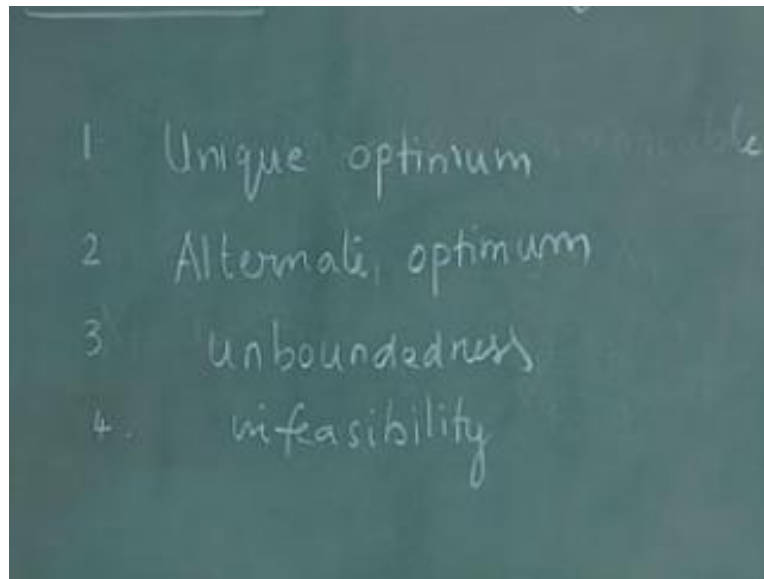 1 Unique optimum
2 Alternate, optimum
3 unboundedness
4. infeasibility